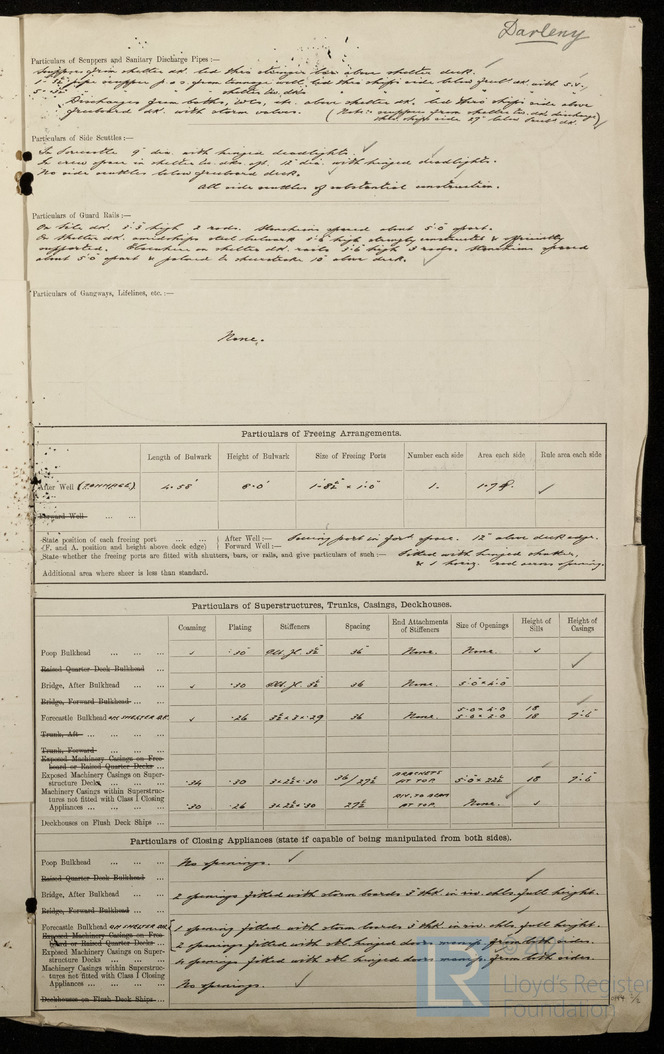 Darleny
Particulars of Scuppers and Sanitary Discharge Pipes :—
Scuppers from shelter dk. led thro' stringer bar above shelter deck.
pipe scupper p & s from tonnage well, led thro ships side below freebd dk. with S.V.
shelter tw. dks
Discharges from baths, WCs, etc. above shelter dk. led thro' ships side above
freeboard dk. with storm valves. (Note: scuppers from shelter tw. dk discharge
thro. ships side 27" below freebd dk.)
Particulars of Side Scuttles :—
In Forecastle 9" dia. with hinged deadlights.
In crew space in shelter tw. dks aft. 12" dia. with hinged deadlights.
No side scuttles below freeboard deck.
All side scuttles of substantial construction.
Particulars of Guard Rails :—
On Fcle dk. 3'-3" high 2 rods. Stanchions spaced about 5'-0" apart.
On shelter dk. amidships steel bulwark 3'-6" high strongly constructed & efficiently
supported. Elsewhere on shelter dk. rails 3'-6" high 3 rods. Stanchions spaced
about 5'-0" apart & joined to sheerstrake 10" above deck.
Particulars of Gangways, Lifelines, etc. :—
None.
Particulars of Freeing Arrangements.
Length of Bulwark Height of Bulwark Size of Freeing Ports Number each side Area each side Rule area each side
After Well (TONNAGE) 4.58' 8'-0" 1'-8½" × 1'-0" 1. 1.7 ✓
Forward Well ... ...
State position of each freeing port ... ... After Well :— Freeing port in port space. 12" above deck edge.
(F. and A. position and height above deck edge) Forward Well :—
State whether the freeing ports are fitted with shutters, bars, or rails, and give particulars of such :— Fitted with hinged shutter,
& 1 horiz. rod across opening.
Additional area where sheer is less than standard.
Particulars of Superstructures, Trunks, Casings, Deckhouses.
Coaming Plating Stiffeners Spacing End Attachments of Stiffeners Size of Openings Height of Sills Height of Casings
Poop Bulkhead ... ... ... .30 36" None. None.
Raised Quarter Deck Bulkhead ...
Bridge, After Bulkhead ... ... .30 36" None 5'-0" × 4'-0"
Bridge, Forward Bulkhead ... ...
Forecastle Bulkhead ON SHELTER DK. .26 3½ × 3 × .29 36" None. 5'-0" × 2'-0" 5'-0" × 2'-0" 18" 18" 7'-6"
Trunk, Aft ... ... ... ...
Trunk, Forward ... ... ...
Exposed Machinery Casings on Free-
board or Raised Quarter Decks ...
Exposed Machinery Casings on Super-
structure Decks ... ... ... .34 .30 3 × 2½ × .30 36"/27½" BRACKETS AT TOP 5'-0" × 22½" 18" 7'-6"
Machinery Casings within Superstruc-
tures not fitted with Class I Closing
Appliances ... ... ... ... .30 .26 3 × 2½ × .30 27½" RIV. TO BEAM AT TOP. None.
Deckhouses on Flush Deck Ships ...
Particulars of Closing Appliances (state if capable of being manipulated from both sides).
Poop Bulkhead ... ... ... No openings.
Raised Quarter Deck Bulkhead ...
Bridge, After Bulkhead ... ... 2 openings fitted with storm boards 3" thk. in riv. chls. full height.
Bridge, Forward Bulkhead ... ...
Forecastle Bulkhead ON SHELTER DK. 1 opening fitted with storm boards 3" thk. in riv. chls. full height.
Exposed Machinery Casings on Free-
board or Raised Quarter Decks ... 2 openings fitted with stl. hinged doors manip. from both sides.
Exposed Machinery Casings on Super-
structure Decks ... ... ... 4 openings fitted with stl. hinged doors manip. from both sides.
Machinery Casings within Superstruc-
tures not fitted with Class I Closing
Appliances ... ... ... ... No openings.
Deckhouses on Flush Deck Ships ...
LR
Lloyd's Register
Foundation